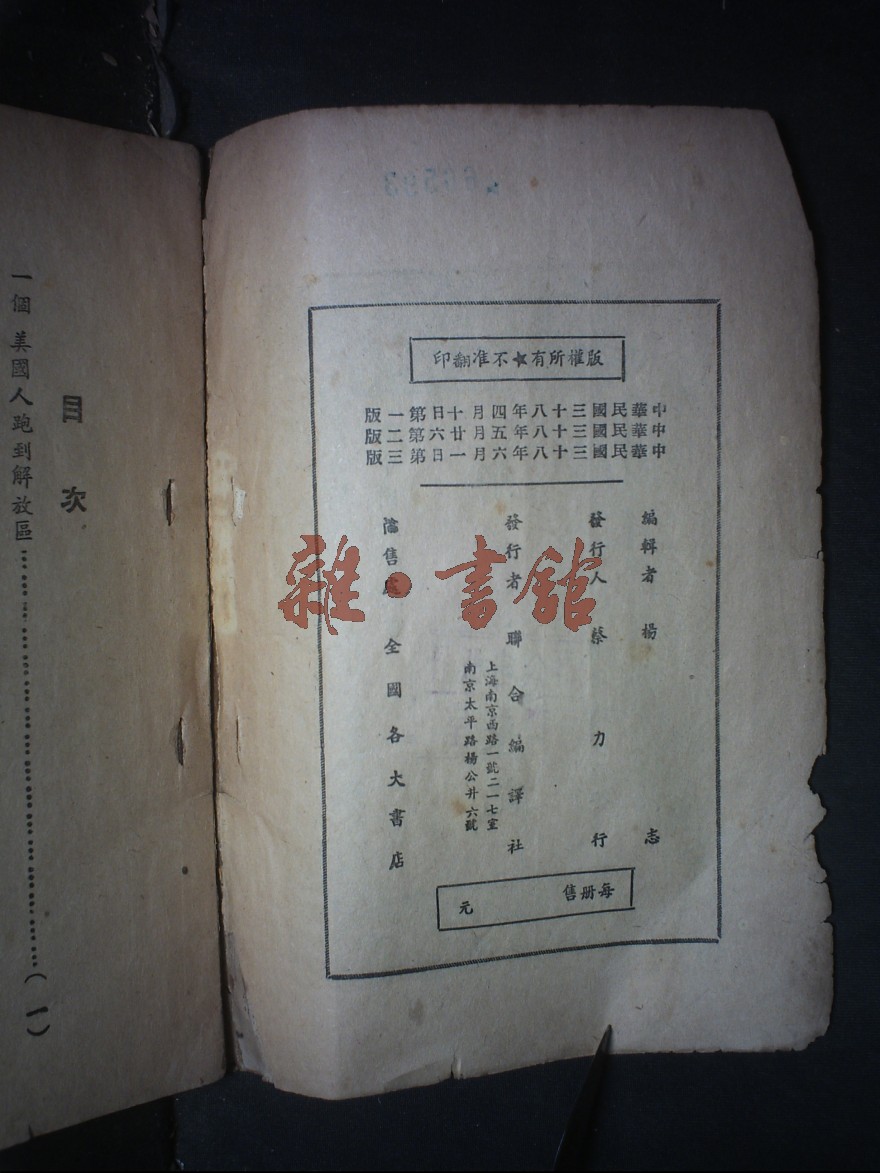 版權所有★不准翻印
中華民國三十八年四月十日第一版
中華民國三十八年五月廿六第二版
中華民國三十八年六月一日第三版
編輯者 楊志
發行人 蔡力行
發行者 聯合編譯社
上海南京西路一號二一七室
南京太平路楊公井六號
售處 全國各大書店
每册售 元
目次
一個美國人跑到解放區……(一)
雜·書館